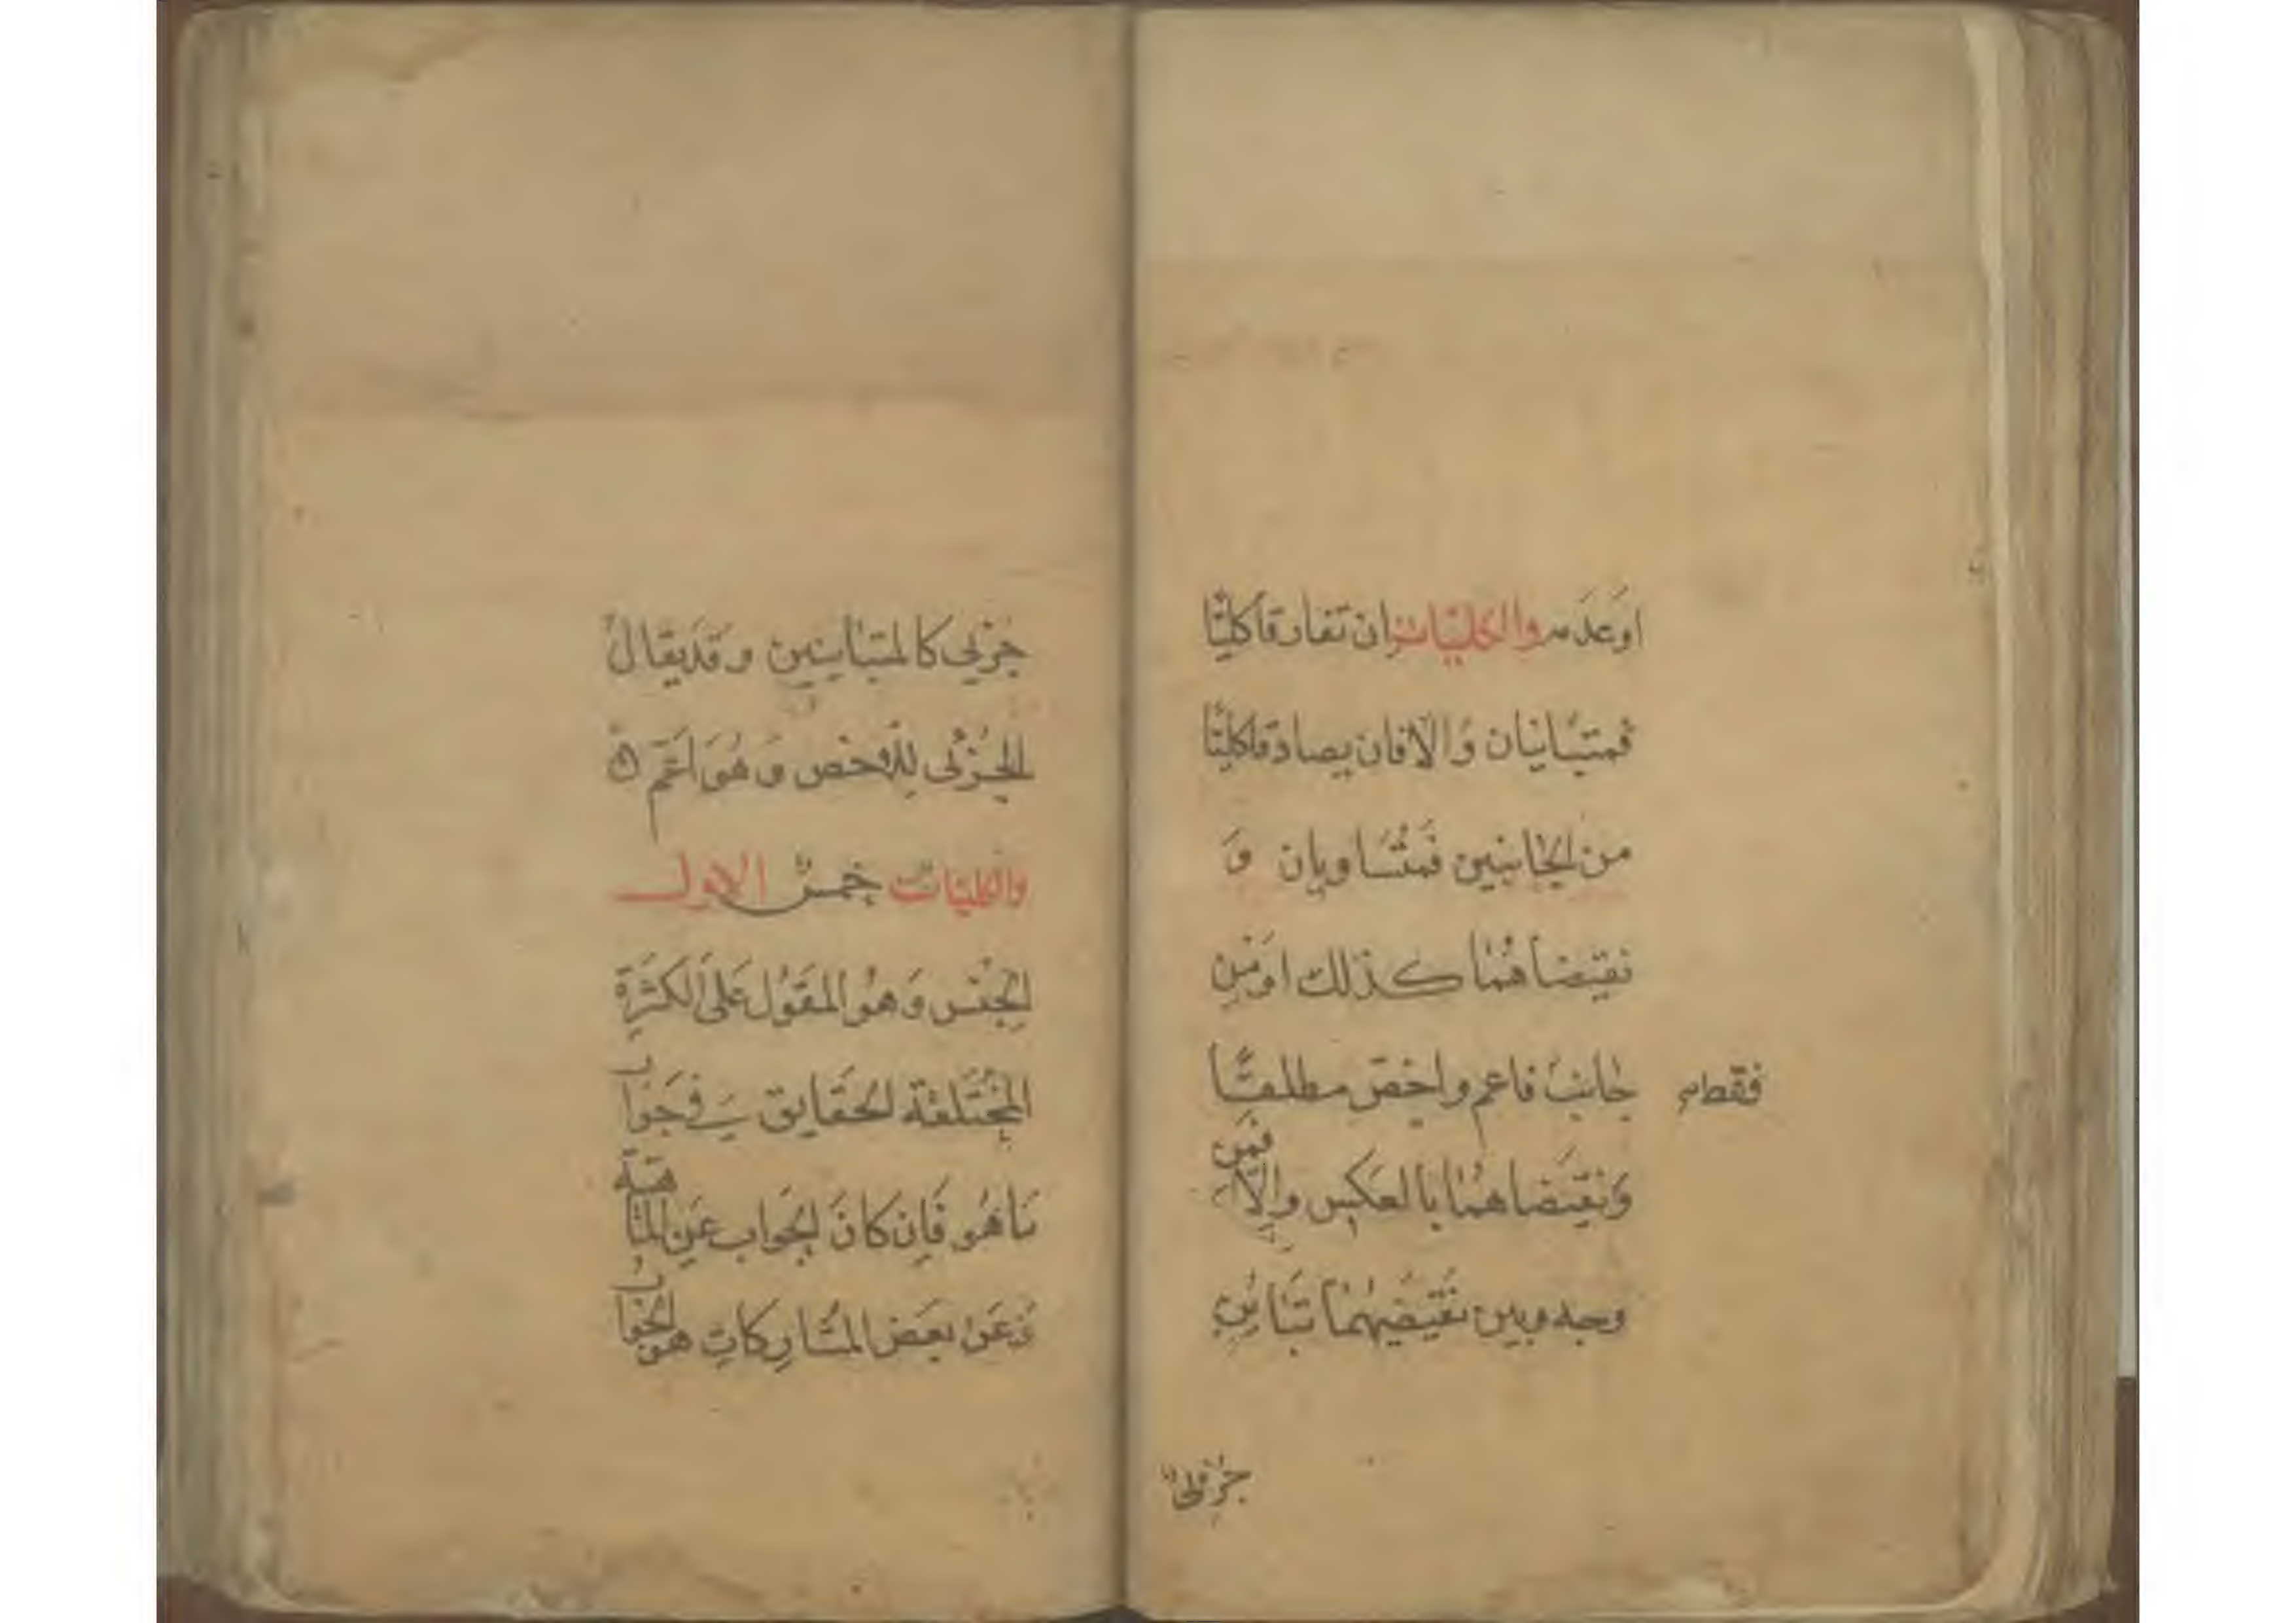 اوعدمه والكليات ان تفارقا كليًّا
فمتباينان وَالا فان يصادقا كليًّا
من الجانبين فمتساويان وَ
نقيضاهما كذلك اومن
جانب فاعم واخصّ مطلقًا
فقط
وَنقيضاهما بالعكس والا فمن
وجه وبين نقيضيهما تباين
جزئی
جزئی كالمتباينين وقديقال
الجزئی للاخص وهوَ اعَم
والكليات خمس الاول
الجنس وَهوَ المقول عَلی الكثرة
المختلفة الحقايق فی جواب
ماهو فَاِن كانَ الجواب عَن الماهية
وَعَن بعَض المشاركاتِ هو الجواب